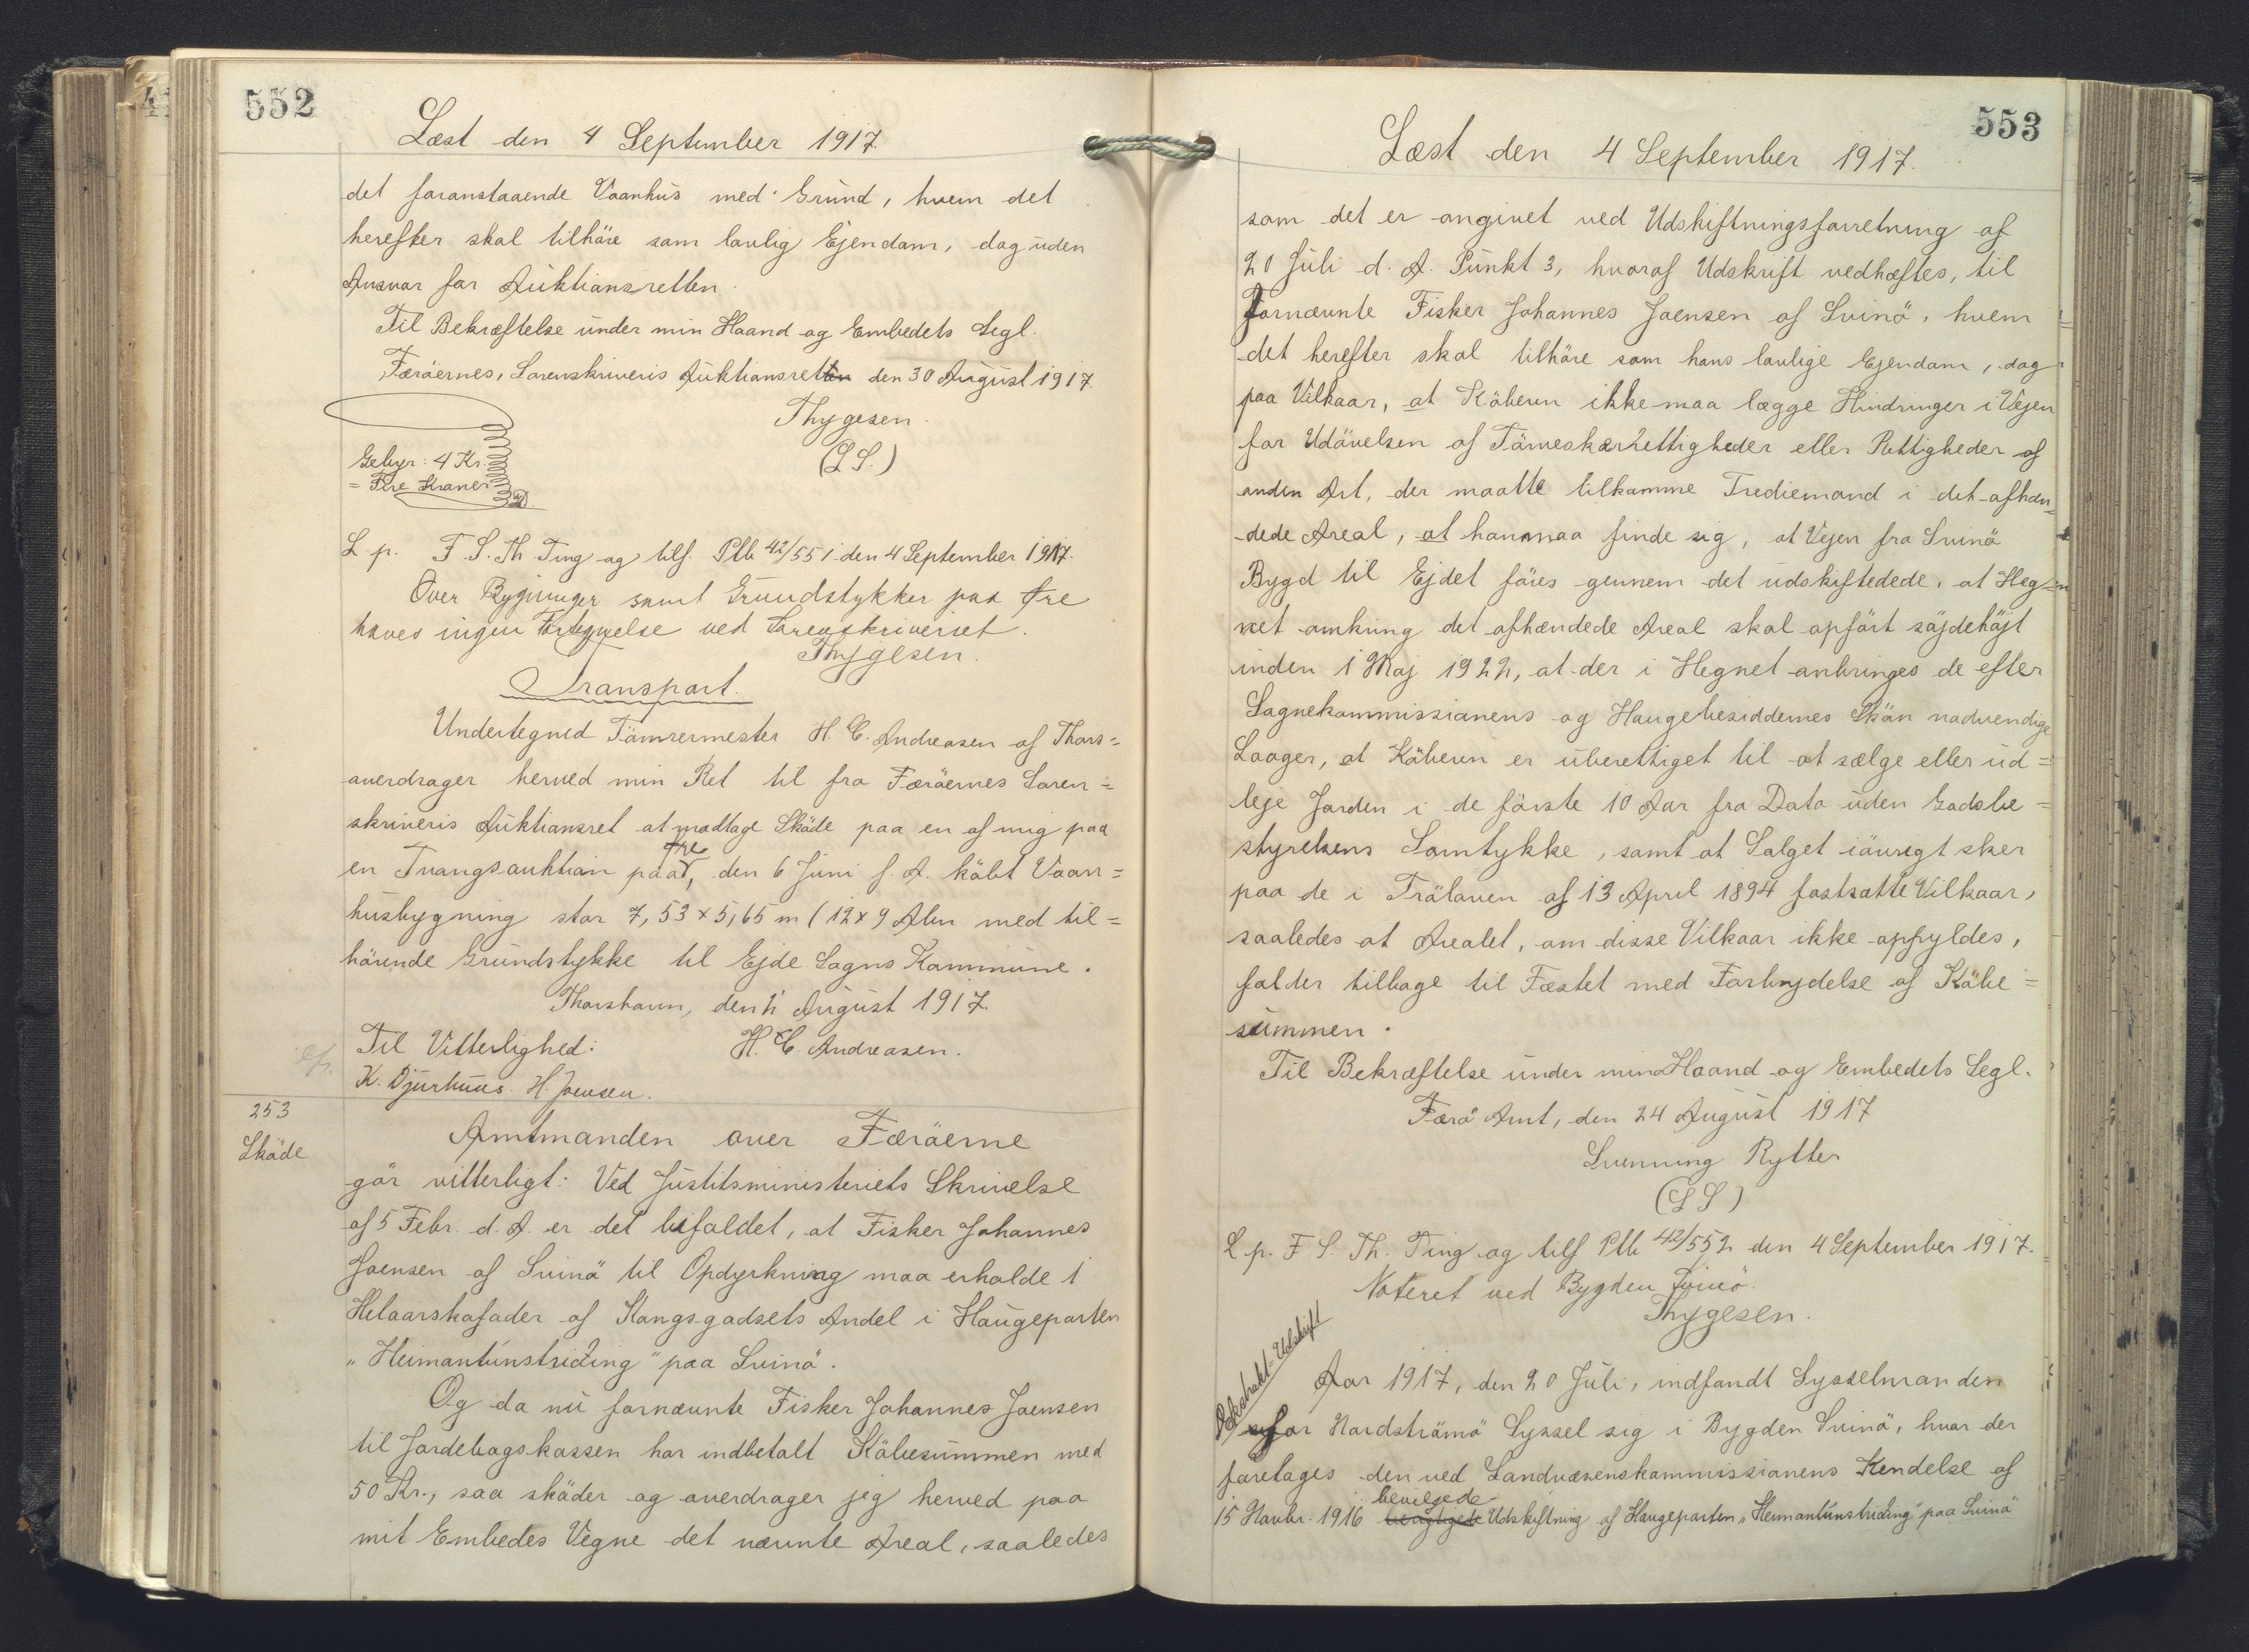 552
Læst den 4 September 1917.
det foranstaaende Vaanhus med Grund, hvem det
herefter skal tilhöre som lovlig Ejendom, dog uden
Ansvar for Auktionsretten.
Til Bekræftelse under min Haand og Embedets Segl.
Færöernes, Sorenskriveris Auktionsret den 30 August 1917.
Thygesen.
(L S.)
Gebyr: 4 Kr.
= Fire Kroner
L p. F. S. Th. Ting og tilf. Ptb 42/551 den 4 September 1917.
Over Bygninger samt Grundstykker paa Öre
haves ingen Fortegnelse ved Sorenskriveriet.
Thygesen.
Transport.
Undertegned Tömrermester H. C. Andreasen af Thors=
overdrager herved min Ret til fra Færöernes Soren=
skriveris Auktionsret at modtage Sköde paa en af mig paa
en Tvangsauktion paa Öre, den 6 Juni f. A. köbt Vaan=
husbygning stor 7,53 x 5,65 m (12 x 9 Alen med til=
hörende Grundstykke til Ejde Sogns Kommune.
Thorshavn, den 4 August 1917.
Til Vitterlighed: H. C. Andreasen.
K. Djurhuus. H. Joensen.
253
Sköde
Amtmanden over Færöerne
gör vitterligt: Ved Justitsministeriets Skrivelse
af 5 Febr. d. A. er det bifaldet, at Fisker Johannes
Joensen af Svinö til Opdyrkning maa erholde 1
Helaarskofoder af Kongsgodsets Andel i Haugeparten
"Heimantúnstriđing" paa Svinö.
Og da nu fornævnte Fisker Johannes Joensen
til Jordebogskassen har indbetalt Köbesummen med
50 Kr., saa sköder og overdrager jeg herved paa
mit Embedes Vegne det nævnte Areal, saaledes
553
Læst den 4 September 1917.
som det er angivet ved Udskiftningsforretning af
20 Juli d. A. Punkt 3, hvoraf Udskrift vedhæftes, til
Fornævnte Fisker Johannes Joensen af Svinö, hvem
det herefter skal tilhöre som hans lovlige Ejendom, dog
paa Vilkaar, at Köberen ikke maa lægge Hindringer i Vejen
for Udövelsen af Törveskærrettigheder eller Rettigheder af
anden Art, der maatte tilkomme Trediemand i det afhæn=
dede Areal, at han maa finde sig, at Vejen fra Svinö
Bygd til Ejdet föres gennem det udskiftedede, at Heg=
net omkring det afhændede Areal skal opfört söjdehöjt
inden 1 Maj 1922, at der i Hegnet anbringes de efter
Sognekommissionens og Haugebesiddernes Skön nödvendige
Laager, at Köberen er uberettiget til at sælge eller ud=
leje Jorden i de förste 10 Aar fra Dato uden Godsbe=
styrelsens Samtykke, samt at Salget iövrigt sker
paa de i Trälaven af 13 April 1894 fastsatte Vilkaar,
saaledes at Arealet, om disse Vilkaar ikke opfyldes,
falder tilbage til Fæstet med Forbrydelse af Köbe=
summen.
Til Bekræftelse under min Haand og Embedets Segl.
Færö Amt, den 24 August 1917
Svenning Rytter
(L S)
L p. F S. Th. Ting og tilf Ptb 42/552 den 4 September 1917.
Noteret ved Bygden Svinö.
Thygesen.
Ekstrakt-Udskrift
Aar 1917, den 20 Juli, indfandt Sysselmanden
for Nordströmö Syssel sig i Bygden Svinö, hvor der
foretages den ved Landvæsenskommissionens Kendelse af
15 Novbr. 1916 bevilgede Udskiftning af Haugeparten "Heimantúnstriđing" paa Svinö